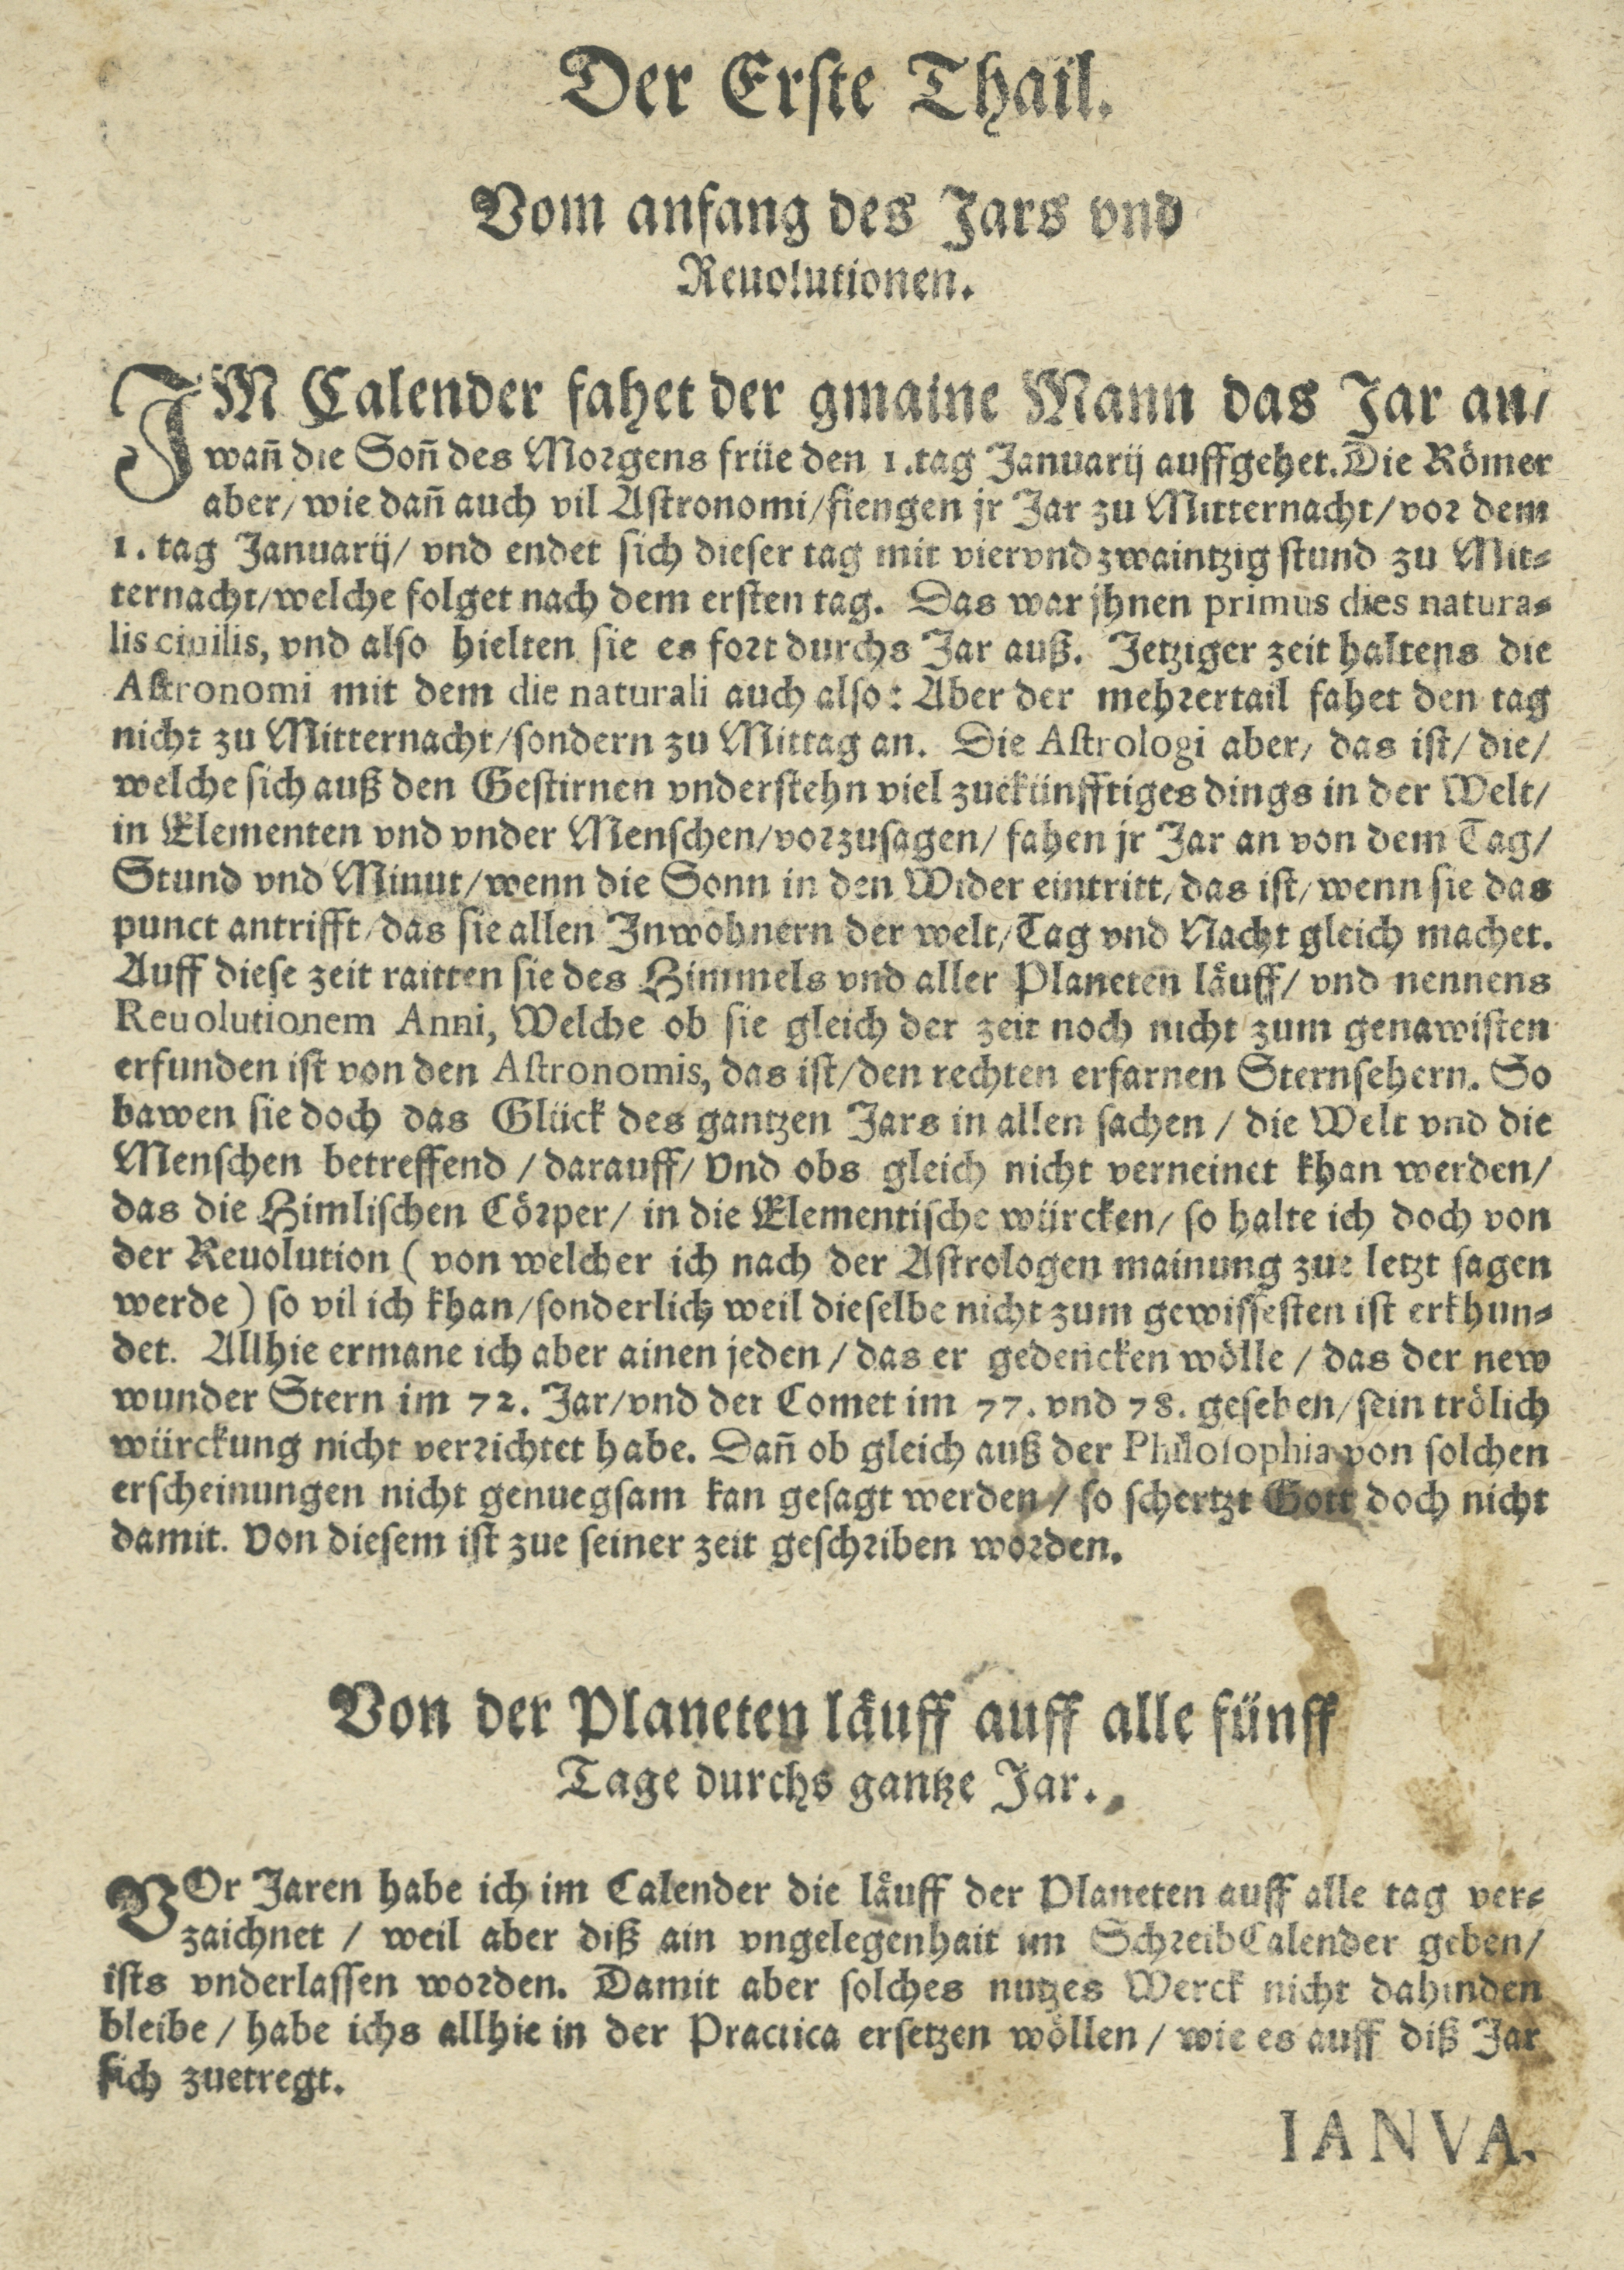 Der Erste Thail.
Vom anfang des Jars vnd
Reuolutionen.
IM Calender fahet der gmaine Mann das Jar an/
wañ die Soñ des Morgens früe den 1. tag Januarij auffgehet. Die Römer
aber/ wie dañ auch vil Astronomi/ fiengen jr Jar zu Mitternacht/ vor dem
1. tag Januarij/ vnd endet sich dieser tag mit viervnd zwaintzig stund zu Mit-
ternacht/ welche folget nach dem ersten tag. Das war jhnen primus dies natura-
lis ciuilis, vnd also hielten sie es fort durchs Jar auß. Jetziger zeit haltens die
Astronomi mit dem die naturali auch also: Aber der mehrertail fahet den tag
nicht zu Mitternacht/ sondern zu Mittag an. Die Astrologi aber/ das ist/ die/
welche sich auß den Gestirnen vnderstehn viel zuekünfftiges dings in der Welt/
in Elementen vnd vnder Menschen/ vorzusagen/ fahen jr Jar an von dem Tag/
Stund vnd Minut/ wenn die Sonn in den Wider eintritt/ das ist/ wenn sie das
punct antrifft/ das sie allen Inwohnern der welt/ Tag vnd Nacht gleich machet.
Auff diese zeit raitten sie des Himmels vnd aller Planeten läuff/ vnd nennens
Reuolutionem Anni, Welche ob sie gleich der zeit noch nicht zum genawisten
erfunden ist von den Astronomis, das ist/ den rechten erfarnen Sternsehern. So
bawen sie doch das Glück des gantzen Jars in allen sachen / die Welt vnd die
Menschen betreffend / darauff/ Vnd obs gleich nicht verneinet khan werden/
das die Himlischen Cörper/ in die Elementische würcken/ so halte ich doch von
der Reuolution ( von welcher ich nach der Astrologen mainung zue letzt sagen
werde ) so vil ich khan/ sonderlich weil dieselbe nicht zum gewissesten ist erkhun-
det. Allhie ermane ich aber ainen jeden / das er gedencken wölle / das der new
wunder Stern im 72. Jar/ vnd der Comet im 77. vnd 78. gesehen/ sein trölich
würckung nicht verrichtet habe. Dañ ob gleich auß der Philosophia von solchen
erscheinungen nicht genuegsam kan gesagt werden / so schertzt Gott doch nicht
damit. Von diesem ist zue seiner zeit geschriben worden.
Von der Planeten läuff auff alle fünff
Tage durchs gantze Jar.
VOr Jaren habe ich im Calender die läuff der Planeten auff alle tag ver-
zaichnet / weil aber diß ain vngelegenhait im SchreibCalender geben/
ists vnderlassen worden. Damit aber solches nutzes Werck nicht dahinden
bleibe / habe ichs allhie in der Practica ersetzen wöllen / wie es auff diß Jar
sich zuetregt.
IANVA.